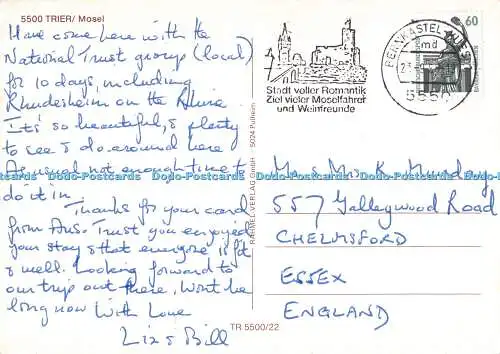 5500 TRIER/ Mosel
Have come here with the
National Trust group (local)
for 10 days, including
Rhudesheim on the Rhine
It's so beautiful, & plenty
to see & do around here
As usual not enough time to
do it in.
Thanks for your card
from Aus. Trust you enjoyed
your stay & that everyone is fit
& well. Looking forward to
our trip out there. Wont be
long now With Love
Liz & Bill
RAHMEL-VERLAG GmbH · 5024 Pulheim
TR 5500/22
Stadt voller Romantik
Ziel vieler Moselfahrer
und Weinfreunde
BERNKASTEL-KUES
md
5550
60
Mr & Mrs K. Munday
557 Galleywood Road
CHELMSFORD
ESSEX
ENGLAND
Dodo-Postcards Dodo-Postcards Dodo-Postcards Dodo-Postcards